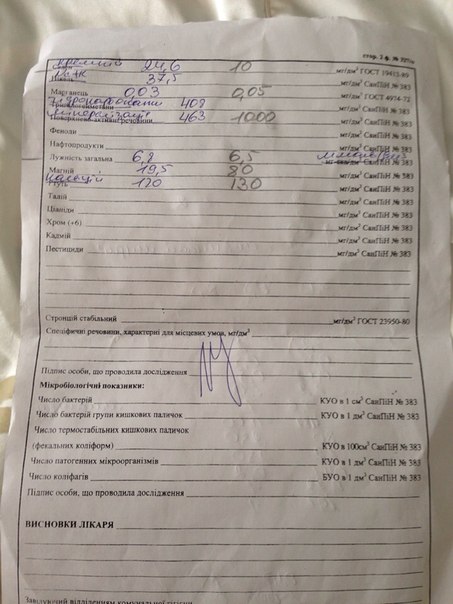 стор. 2 ф. №
кремній 24,6 10 мг/дм³ ГОСТ 19413-89
37,5 мг/дм³ СанПіН № 383
Марганець 0,03 0,05 мг/дм³ ГОСТ 4974-72
гідрокарбонати 408 мг/дм³ СанПіН № 383
мінералізація 463 1000 мг/дм³ СанПіН № 383
Феноли мг/дм³ СанПіН № 383
Нафтопродукти мг/дм³ СанПіН № 383
Лужність загальна 6,8 6,5 СанПіН № 383
Магній 19,5 80 мг/дм³ СанПіН № 383
кальцій 120 130 мг/дм³ СанПіН № 383
Талій мг/дм³ СанПіН № 383
Ціаніди мг/дм³ СанПіН № 383
Хром (+6) мг/дм³ СанПіН № 383
Кадмій мг/дм³ СанПіН № 383
Пестициди мг/дм³ СанПіН № 383
Стронцій стабільний мг/дм³ ГОСТ 23950-80
Специфічні речовини, характерні для місцевих умов, мг/дм³
Підпис особи, що проводила дослідження
Мікробіологічні показники:
Число бактерій КУО в 1 см³ СанПіН № 383
Число бактерій групи кишкових паличок КУО в 1 дм³ СанПіН № 383
Число термостабільних кишкових паличок
(фекальних коліформ) КУО в 100см³ СанПіН № 383
Число патогенних мікроорганізмів КУО в 1 дм³ СанПіН № 383
Число коліфагів БУО в 1 дм³ СанПіН № 383
Підпис особи, що проводила дослідження
ВИСНОВКИ ЛІКАРЯ
Завідуючий відділенням комунальної гігієни